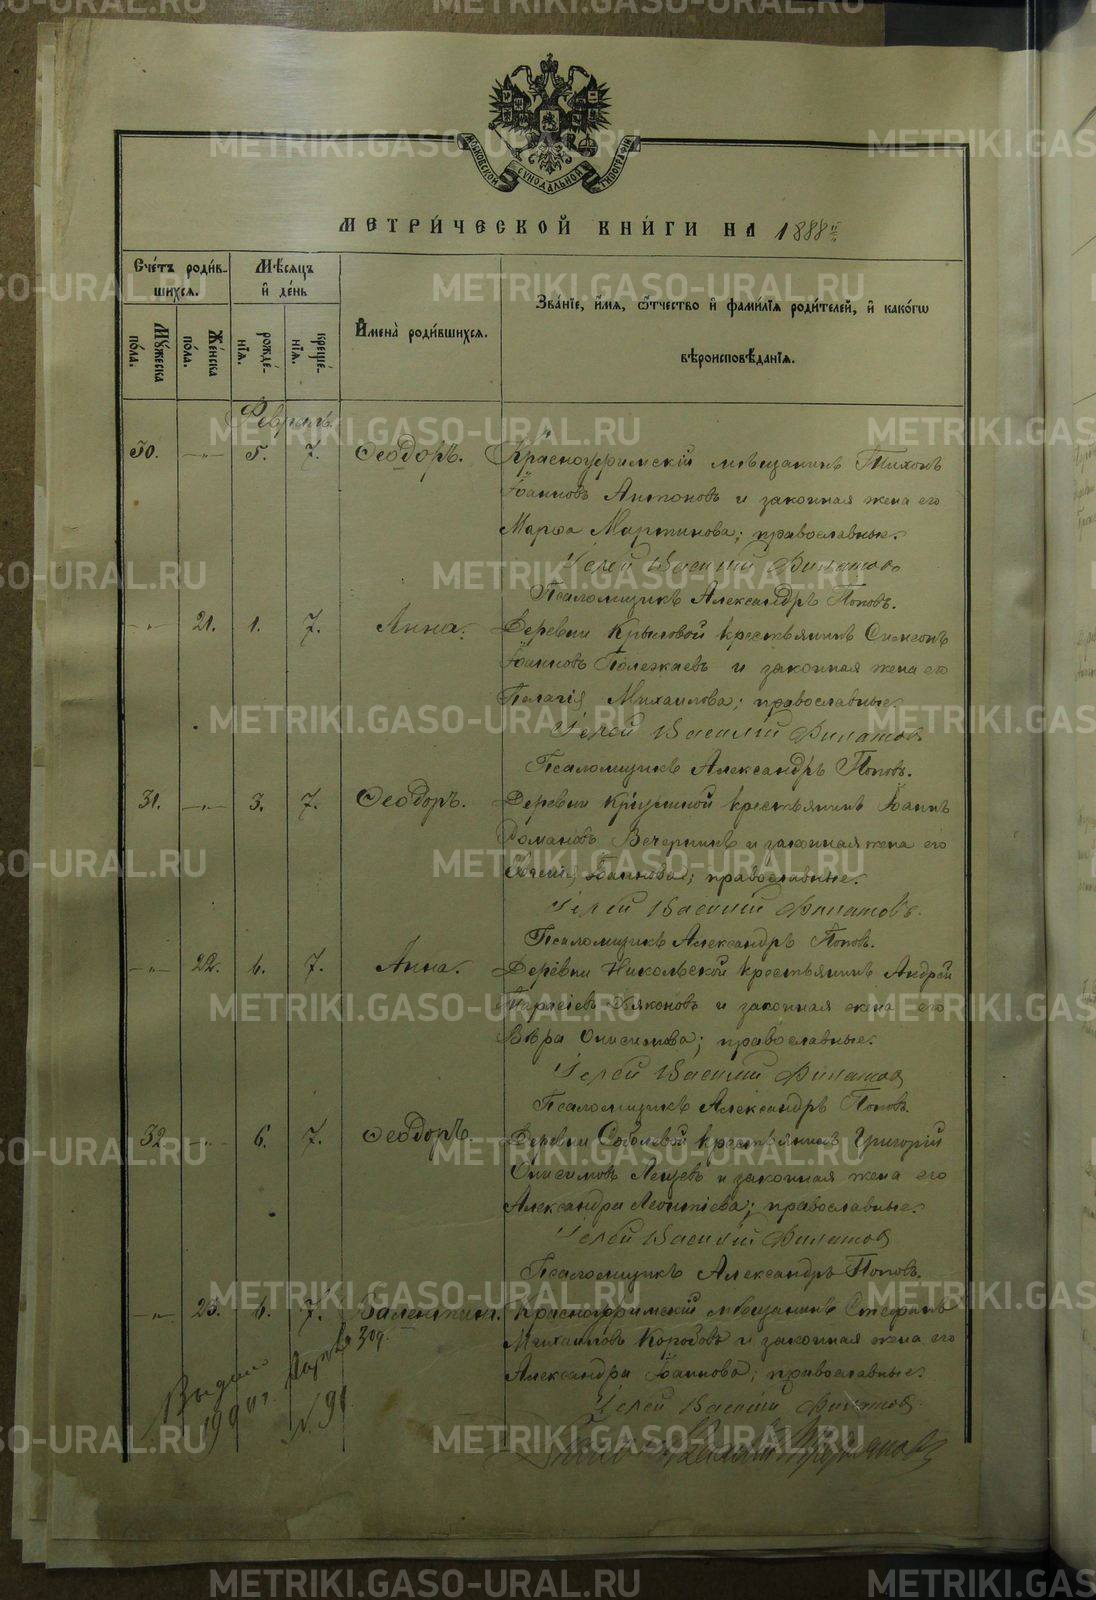 МОСКОВСКОЙ СѴНОДАЛЬНОЙ ТИПОГРАФІИ
МЕТРИ́ЧЕСКОЙ КНИ́ГИ НА 1888й
Сче́тъ роди́в-
шихсѧ.
Мѣ́сѧцъ
и҆ де́нь
И҆мена̀ роди́вшихсѧ.
Зва́нїе, и҆́мѧ, ѻ҆́тчество и҆ фами́лїѧ роди́телей, и҆ како́гѡ
вѣроисповѣ́данїѧ.
Мꙋ́жеска
по́ла.
Же́нска
по́ла.
рожде́-
нїѧ.
креще́-
нїѧ.
Февраль.
30. -„- 5. 7. Ѳеодоръ. Красноуфимскій мѣщанинъ Тихонъ
Іоанновъ Антоновъ и законная жена его
Марѳа Мартинова; православные.
Іерей Василій Филатовъ
Псаломщикъ Александръ Поповъ.
-„- 21. 1. 7. Анна. Деревни Крыловой крестьянинъ Симеонъ
Іоанновъ Полежаевъ и законная жена его
Пелагія Михаилова; православные.
Іерей Василій Филатовъ
Псаломщикъ Александръ Поповъ.
31. -„- 3. 7. Ѳеодоръ. Деревни крестьянинъ Іоаннъ
Романовъ и законная жена его
Іоаннова; православные.
Іерей Василій Филатовъ.
Псаломщикъ Александръ Поповъ.
-„- 22. 6. 7. Анна. Деревни Никольской крестьянинъ Андрей
Дьяконовъ и законная жена его
Вѣра Онисимова; православные.
Іерей Василій Филатовъ
Псаломщикъ Александръ Поповъ.
32 -„- 6. 7. Ѳеодоръ. Деревни Соболевой крестьянинъ Григорій
Онисимовъ и законная жена его
Александра Леонтіева; православные.
Іерей Василій Филатовъ
Псаломщикъ Александръ Поповъ.
-„- 23. 6. 7. Валентина. Красноуфимскій мѣщанинъ Стефанъ
Михаиловъ Коробовъ и законная жена его
Александра Іоаннова; православные.
Іерей Василій Филатовъ
Выдано
Марта 30д.
N. 91
METRIKI.GASO-URAL.RU